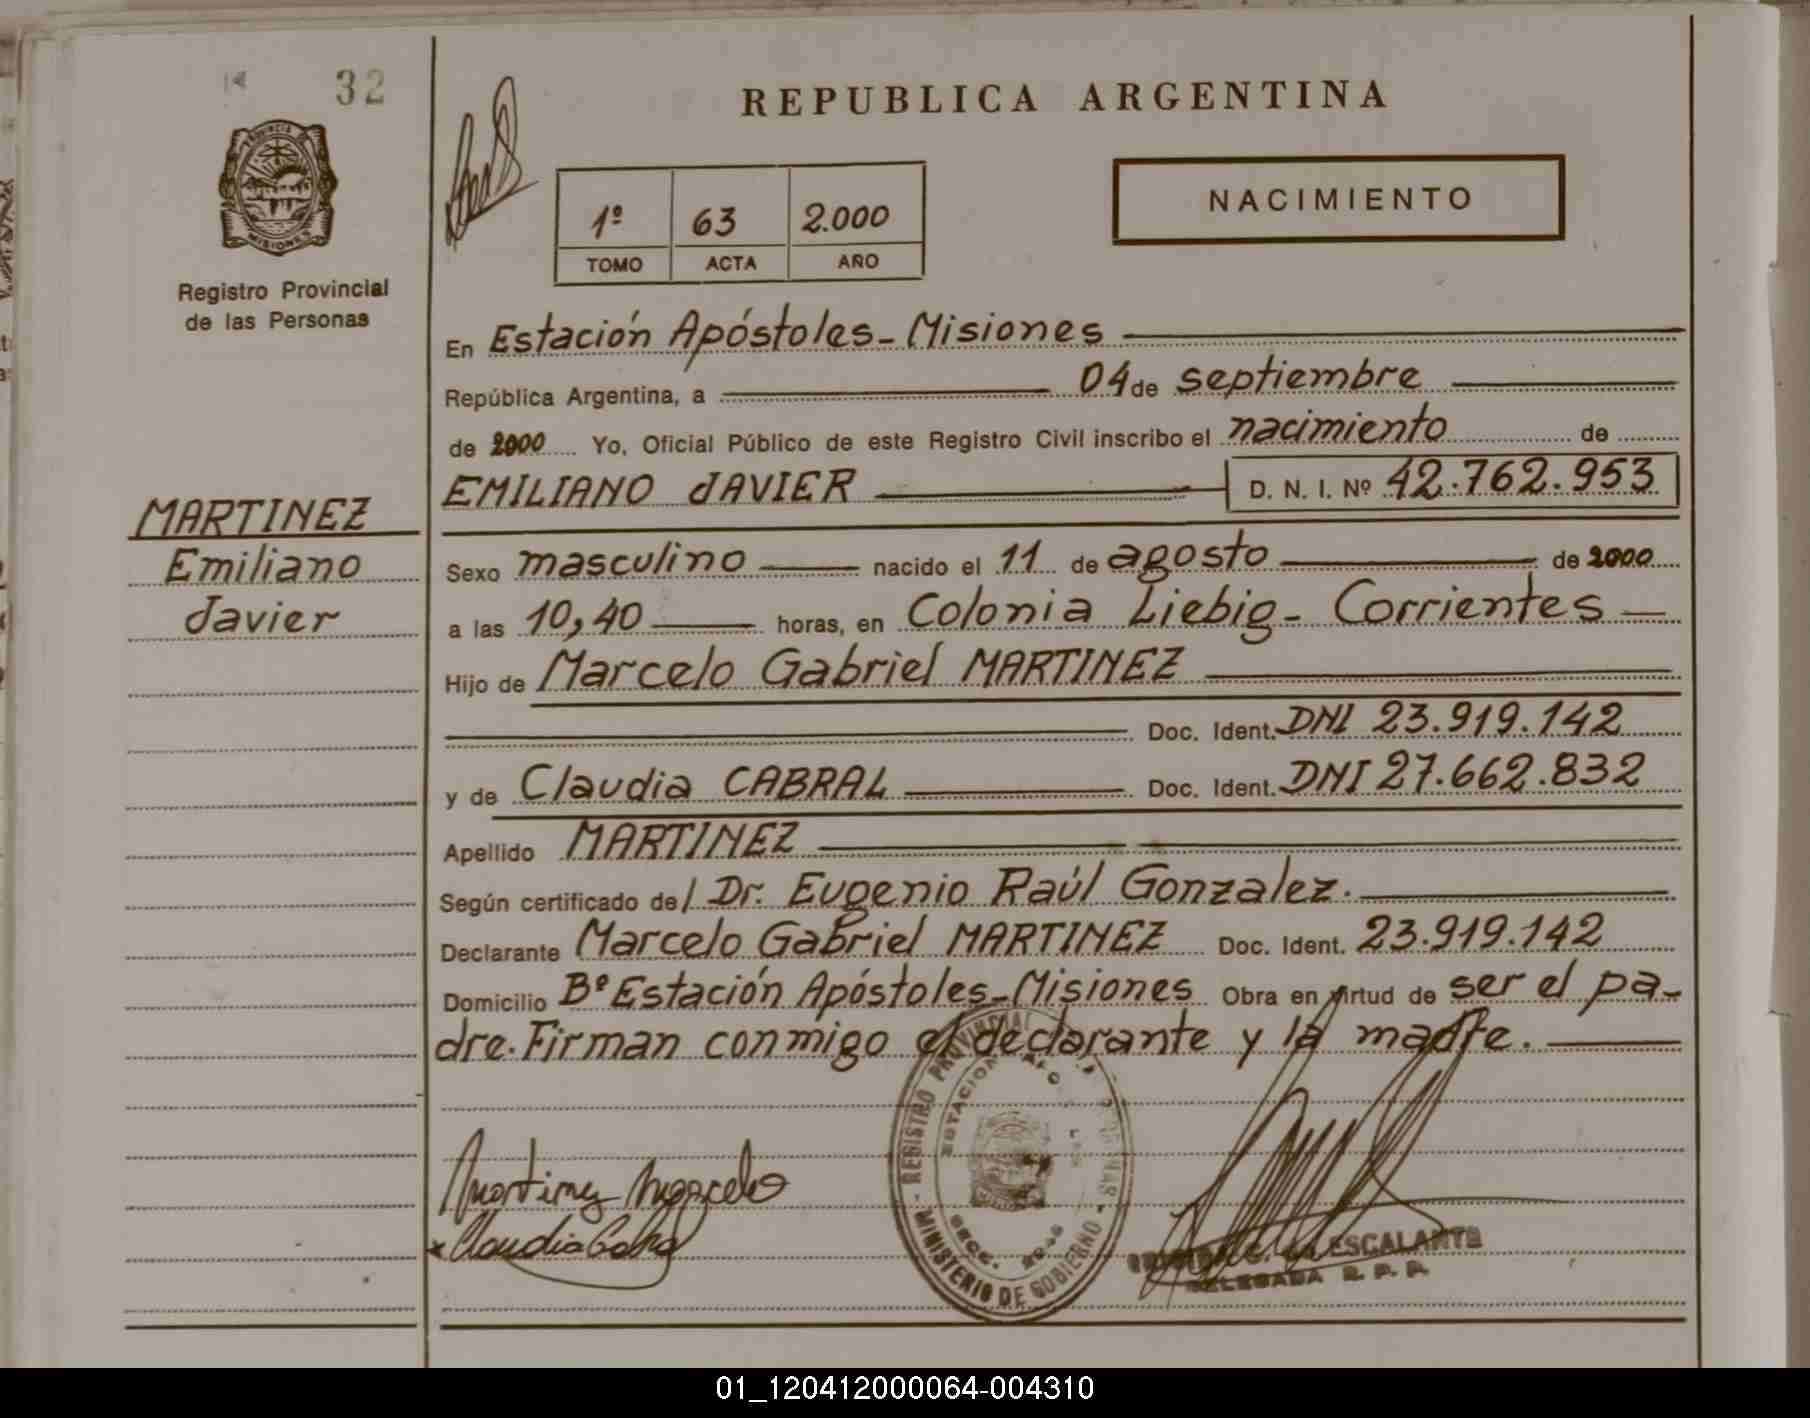 32
REPUBLICA ARGENTINA
PROVINCIA DE
MISIONES
Registro Provincial
de las Personas
1º 63 2.000
TOMO ACTA AÑO
NACIMIENTO
En Estación Apóstoles - Misiones
República Argentina, a 04 de septiembre
de 2000 Yo, Oficial Público de este Registro Civil inscribo el nacimiento de
EMILIANO JAVIER D. N. I. Nº 42.762.953
MARTINEZ
Emiliano
Javier
Sexo masculino nacido el 11 de agosto de 2000
a las 10,40 horas, en Colonia Liebig - Corrientes
Hijo de Marcelo Gabriel MARTINEZ
Doc. Ident. DNI 23.919.142
y de Claudia CABRAL Doc. Ident. DNI 27.662.832
Apellido MARTINEZ
Según certificado de/ Dr. Eugenio Raúl Gonzalez.
Declarante Marcelo Gabriel MARTINEZ Doc. Ident. 23.919.142
Domicilio Bº Estación Apóstoles - Misiones Obra en virtud de ser el pa-
dre. Firman conmigo el declarante y la madre.
REGISTRO PROVINCIAL
ESTACION
MINISTERIO DE GOBIERNO
Martinez Marcelo
Claudia Cabral
ESCALANTE
DELEGADA R. P. P.
01_120412000064-004310